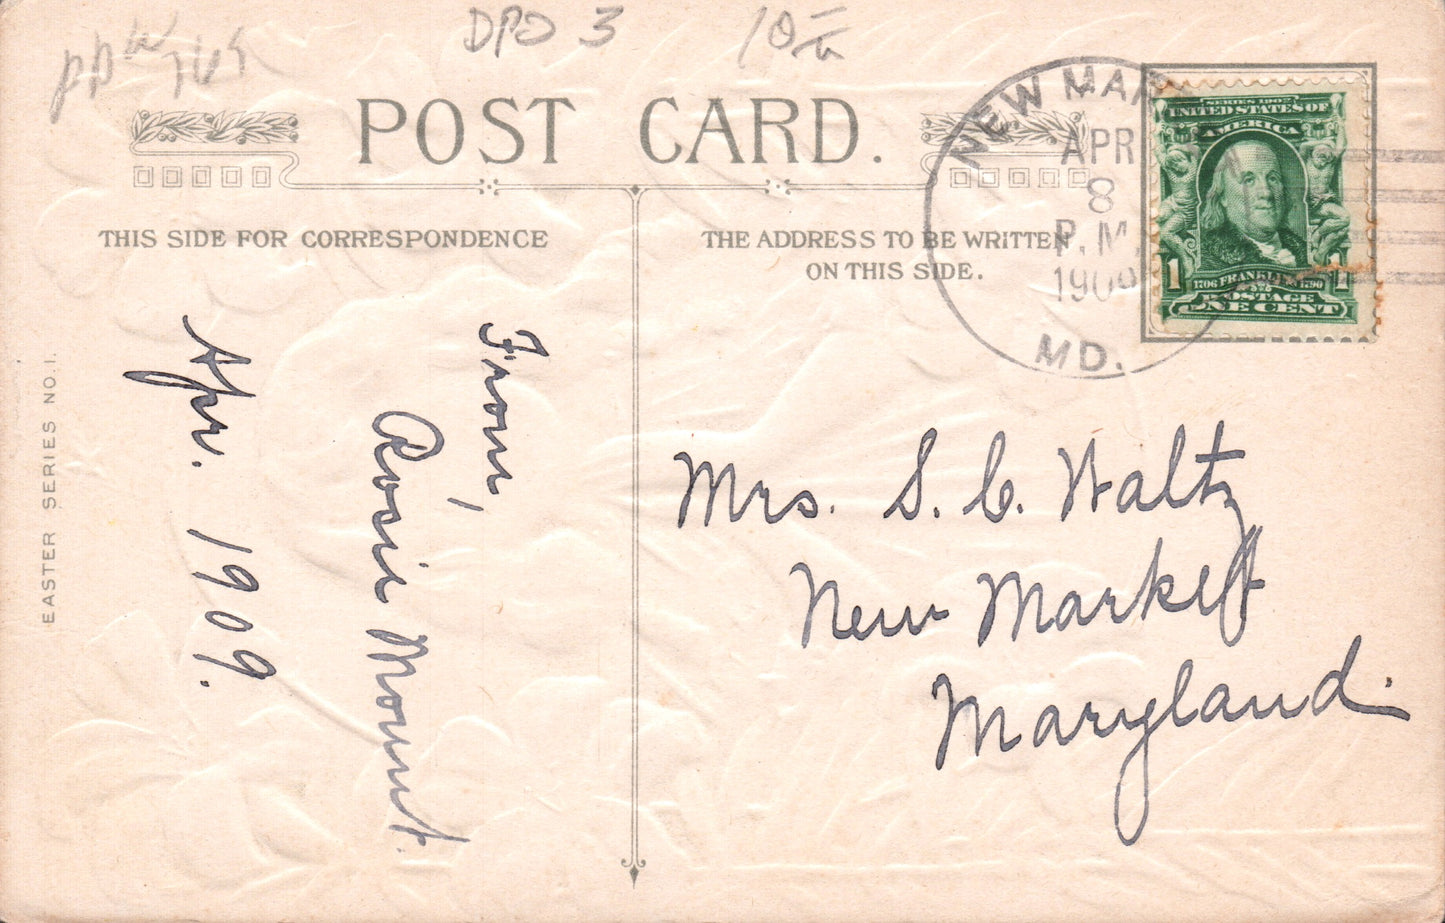 DPO 3
POST CARD.
THIS SIDE FOR CORRESPONDENCE
THE ADDRESS TO BE WRITTEN
ON THIS SIDE.
EASTER SERIES NO. 1.
NEW MAR
APR
8
P.M.
190
MD.
SERIES 1902
UNITED STATES OF
AMERICA
1706 FRANKLIN 1790
1 1
POSTAGE
ONE CENT
From,
Rosie Mount.
Apr. 1909.
Mrs. S. C. Waltz
New Market
Maryland.